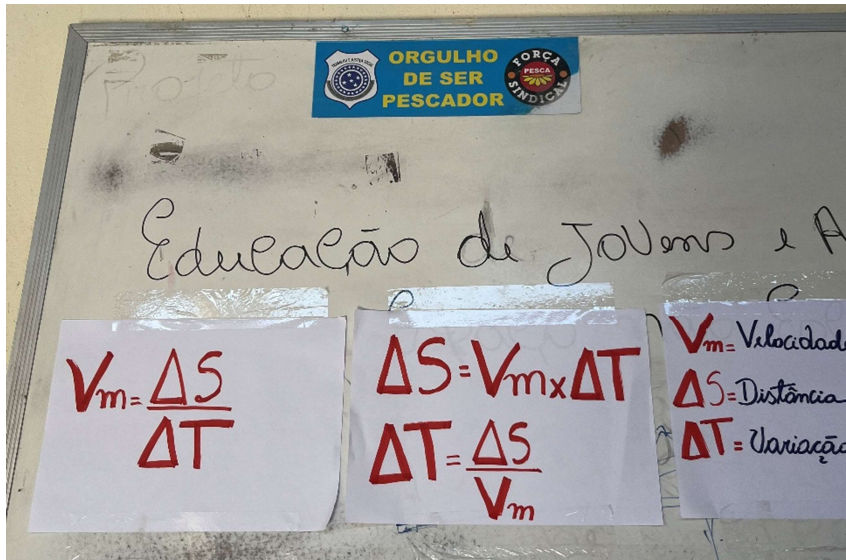 ORGULHO
DE SER
PESCADOR
FORÇA
PESCA
SINDICAL
Projeto
Educação de Jovens e A
Vm = ΔS/ΔT
ΔS = Vm x ΔT
ΔT = ΔS/Vm
Vm = Velocidade
ΔS = Distância
ΔT = Variação